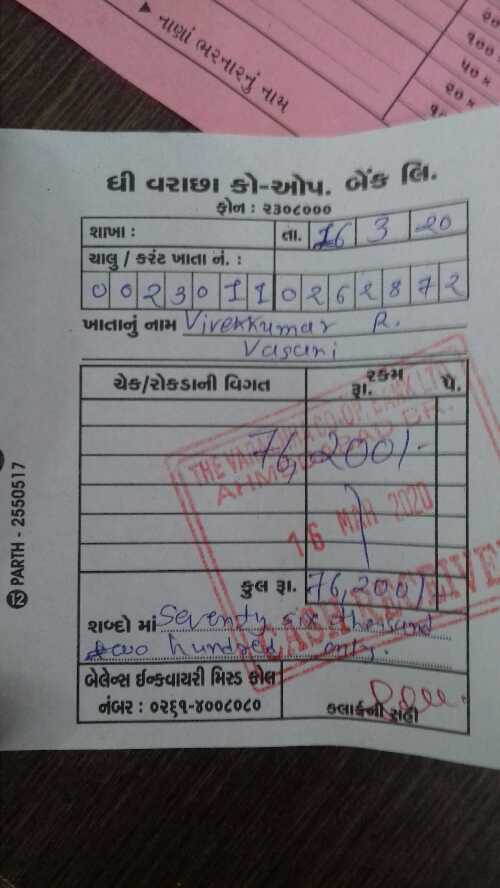 ▶ નાણાં ભરનારનું નામ
૧૦૦
૫૦ ×
૨૦ ×
ધી વરાછા કો-ઓપ. બેંક લિ.
ફોન : ૨૩૦૮૦૦૦
શાખા : તા. 16 3 20
ચાલુ / કરંટ ખાતા નં. :
0 0 2 3 0 1 1 0 2 6 2 8 7 2
ખાતાનું નામ Vivekkumar R.
Vasani
ચેક/રોકડાની વિગત રકમ
રૂા. પૈ.
76,200/-
THE VARACHHA CO.OP. BANK LTD.
AHMEDABAD BR.
16 MAR 2020
CASH RECEIVE
કુલ રૂા. 76,200/-
શબ્દો માં Seventy six thousand
two hundred only.
બેલેન્સ ઈન્કવાયરી મિસ્ડ કોલ
નંબર : ૦૨૬૧-૪૦૦૮૦૮૦
કલાર્કની સહી
PARTH - 2550517